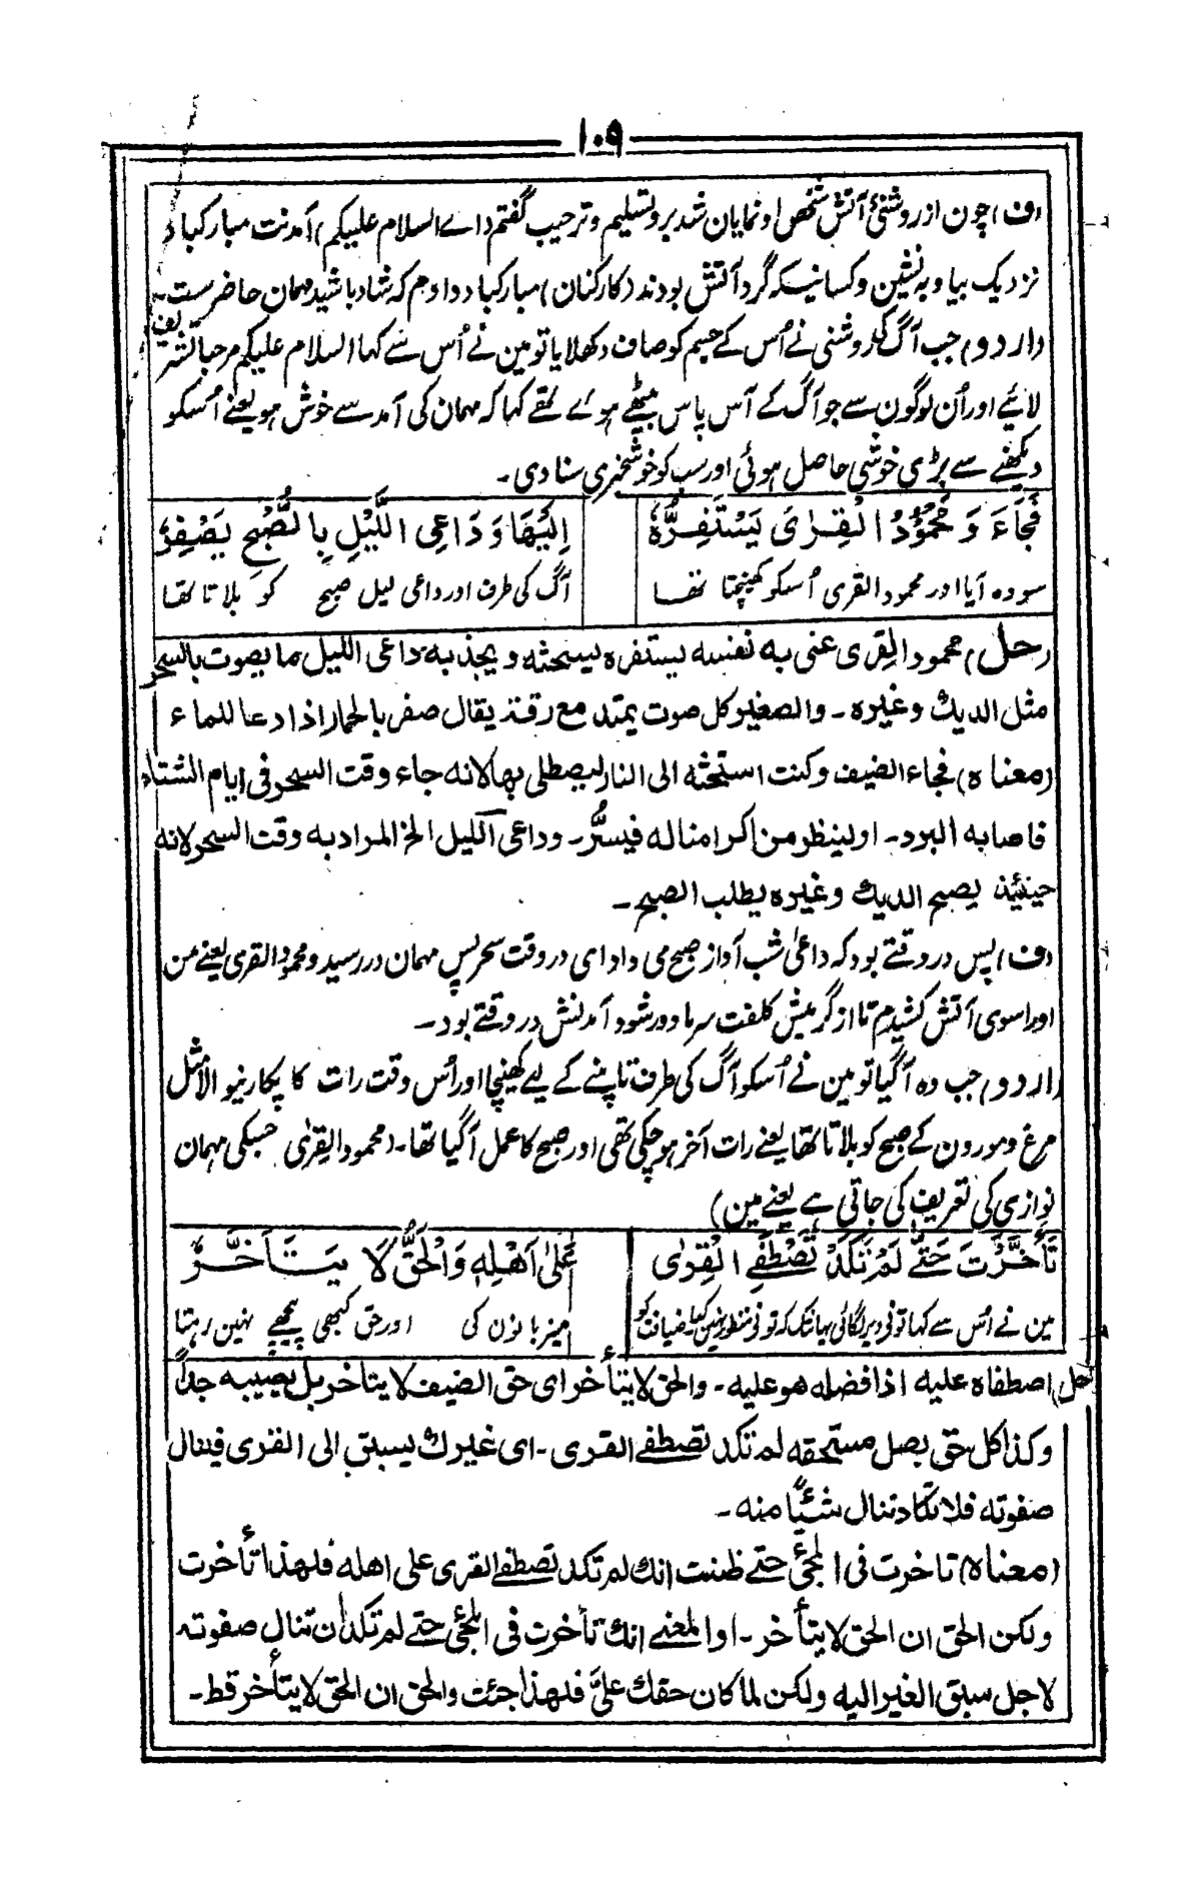 ۱۰۹
(ف) چون از روشنیٔ آتش شخص او نمایان شد برو تسلیم و ترحیب گفتم (اے السلام علیکم) آمدنت مبارکباد
نزدیک بیا و بہ نشین و کسانیکہ گرد آتش بودند (کارکنان) مبارکباد دادم کہ شاد باشید مہمان حاضر ست۔
(اردو) جب آگ کی روشنی نے اُس کے جسم کو صاف دکھلایا تو مین نے اُس سے کہا السلام علیکم مرحبا تشریف
لائیے اور اُن لوگون سے جو آگ کے آس پاس بیٹھے ہوے تھے کہا کہ مہمان کی آمد سے خوش ہو یعنے اُسکو
دیکھنے سے بڑی خوشی حاصل ہوئی اور سب کو خوشخبری سنا دی۔
فَجَاءَ وَ مَحْمُوْدُ الْقِرٰى يَسْتَفِزُّهٗ اِلَيْهَا وَ دَاعِى اللَّيْلِ بِالصُّبْحِ يَصْفِرُ
سو وہ آیا اور محمود القری اُسکو کھینچتا تھا آگ کی طرف اور داعی لیل صبح کو بلاتا تھا
(حل) محمود القرى عنى به نفسه يستفزه يستحثه و يجذبه داعى الليل ما يصوت بالسحر
مثل الديك وغيره۔ والصفير كل صوت يمتد مع رقة يقال صفر بالحمار اذا دعا للماء
(معناه) فجاء الضيف وكنت استحثه الى النار ليصطلى بها لانه جاء وقت السحر فى ايام الشتاء
فاصابه البرد۔ او لينظر من اكرامنا له فيسرّ۔ وداعى الليل الخ المراد به وقت السحر لانه
حينئذ يصيح الديك وغيره يطلب الصبح۔
(ف) پس در وقتے بود کہ داعیٔ شب آواز صبح می داد ای در وقت سحر پس مہمان در رسید و محمود القری یعنے من
اورا سوی آتش کشیدم تا از گرمیش کلفت سرما دور شود آمدنش در وقتے بود۔
(اردو) جب وہ آگیا تو مین نے اُسکو آگ کی طرف تاپنے کے لیے کھینچا اور اُس وقت رات کا پکارنیوالا مثل
مرغ و مورون کے صبح کو بلاتا تھا یعنے رات آخر ہوچکی تھی اور صبح کا عمل آگیا تھا۔ (محمود القرٰی جسکی مہمان
نوازی کی تعریف کی جاتی ہے یعنے مین)
تَأَخَّرْتَ حَتّٰى لَمْ تَكَدْ تَصْطَفِى الْقِرٰى عَلٰى اَهْلِهٖ وَالْحَقُّ لَا يَتَأَخَّرُ
مین نے اُس سے کہا تو نی دیر لگائی یہانتک کہ تو نی منظور نہین کیا ضیافت کو میزبانون کی اور حق کبھی پیچھے نہین رہتا
(حل) اصطفاه عليه اذا فضله هو عليه۔ والحق لا يتأخر اى حق الضيف لا يتاخر بل يصيبه جداً
وكذا كل حق يصل مستحقه لم تكد تصطفے القرى۔ اى غيرك يسبق الى القرى فينال
صفوته فلا تكاد تنال شيئًا منه۔
(معناه) تاخرت فى المجئ حتے ظننت انك لم تكد تصطفے القرى على اهله فلهذا تأخرت
ولكن الحق ان الحق لا يتأخر۔ او المعنے انك تأخرت فى المجئ حتے لم تكد ان تنال صفوته
لاجل سبق الغير اليه ولكن لما كان حقك علیَّ فلهذا جئت والحق ان الحق لا يتأخر قط۔